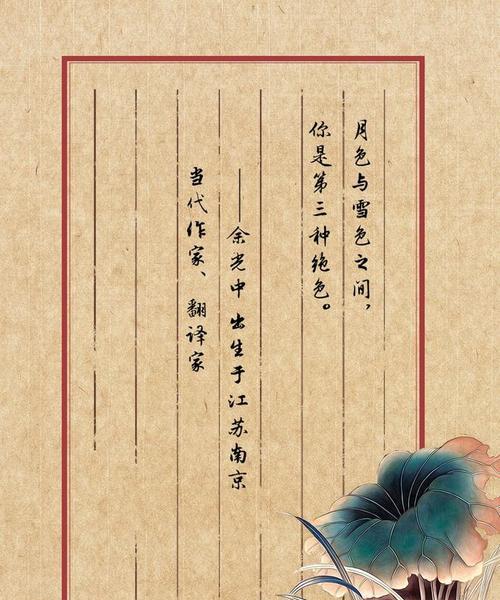 月色与雪色之间，
你是第三种绝色。
——余光中 出生于江苏南京
当代作家、翻译家